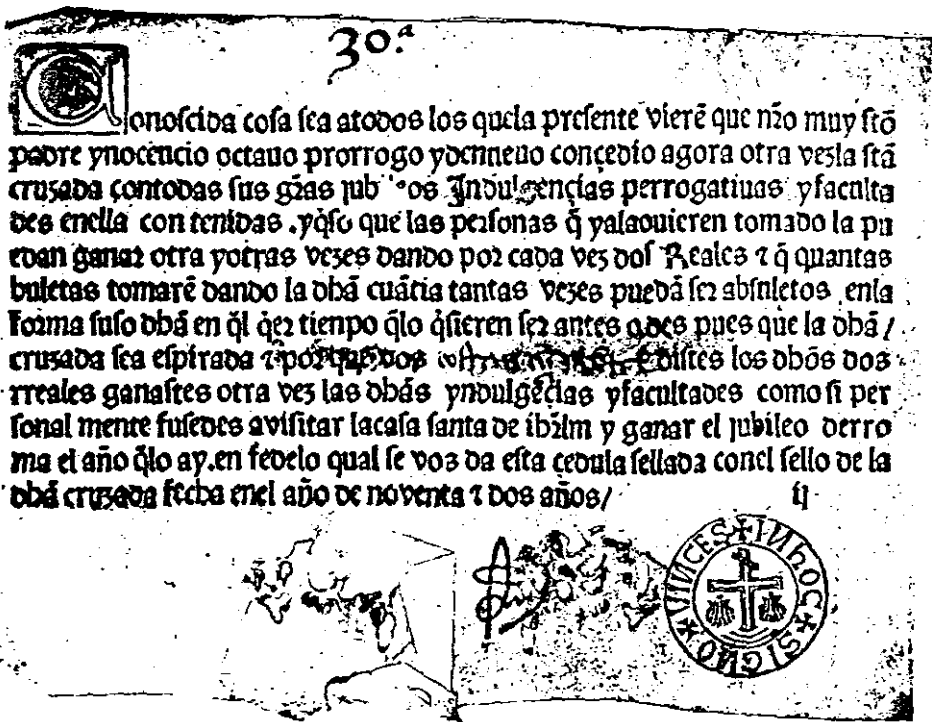 30.ª
Conoscida cosa sea atodos los quela presente vierē que nr̄o muy stō
padre ynocencio octauo prorrogo ydenneuo conçedio agora otra vezla stā
cruzada contodas sus gr̄as jub os Indulgençias perrogatiuas yfaculta
des enella con tenidas .yq̄so que las personas q̄ yalaouieren tomado la pu
edan ganar otra yotras vezes dando por cada vez dos Reales ⁊ q̄ quantas
buletas tomarē dando la dhā cuātia tantas vezes puedā ser absuletos enla
forma suso dhā en q̄l q̄er tienpo q̄lo q̄sieren ser antes pues que la dhā/
cruzada sea espirada ⁊ por vos distes los dhōs dos
rreales ganastes otra vez las dhās yndulgēcias yfacultades como si per
sonal mente fusedes avisitar lacasa santa de ihrlm y ganar el jubileo derro
ma el año q̄lo ay.en fedelo qual se voz da esta çedula sellada conel sello de la
dhā cruzada fecha enel año de noventa ⁊ dos años/
✠ IN hOC ✠ SIGNO ✠ VINCES